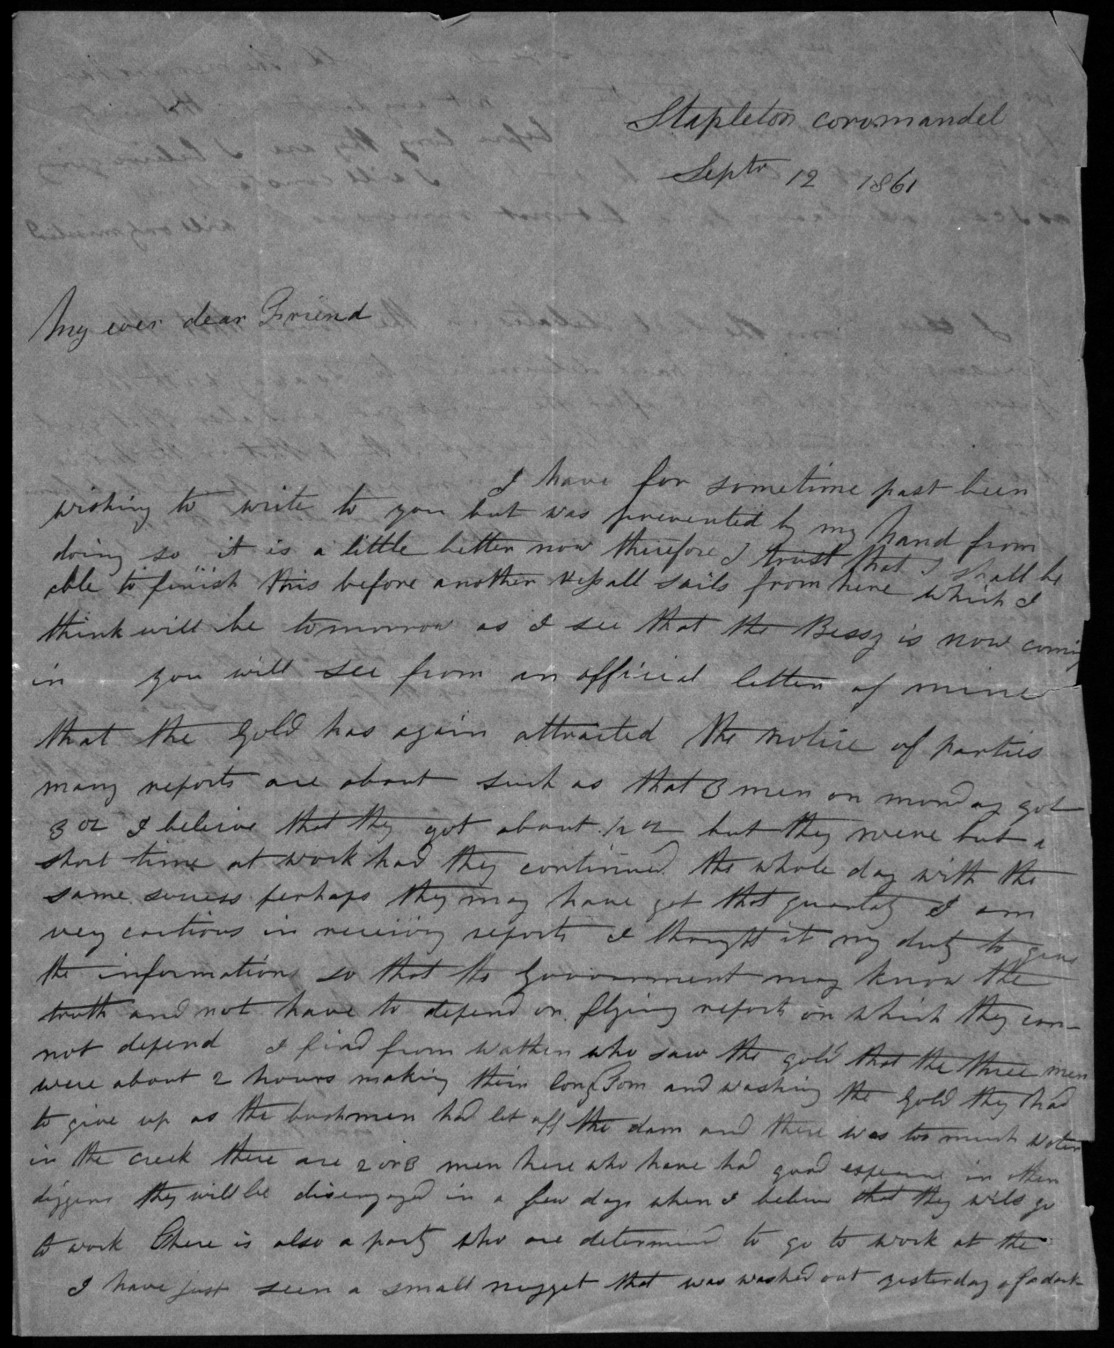 Stapleton coromandel
Septr 12 1861
My ever dear Friend
I have for sometime past been
wishing to write to you but was prevented by my hand from
doing so it is a little better now therefore I trust that I shall be
able to finish this before another vessall sails from here which I
think will be tomorrow as I see that the Bessy is now coming
in you will see from an official letter of mine
that the Gold has again attracted the notice of parties
many reports are about such as that 3 men on monday got
3 oz I believe that they got about ½ oz but they were but a
short time at work had they continued the whole day with the
same success perhaps they may have got that quantity I am
very cautious in receiving reports I thought it my duty to give
the information so that the Government may know the
truth and not have to depend on flying reports on which they can-
not depend I find from Wathen who saw the gold that the three men
were about 2 hours making their long Tom and washing the Gold they had
to give up as the bushmen had let off the dam and there was too much water
in the creek there are 2 or 3 men here who have had good in other
diggens they will be disengaged in a few days when I believe that they will go
to work There is also a party who are determined to go to work at the
I have just seen a small nugget that was washed out yesterday of a dark